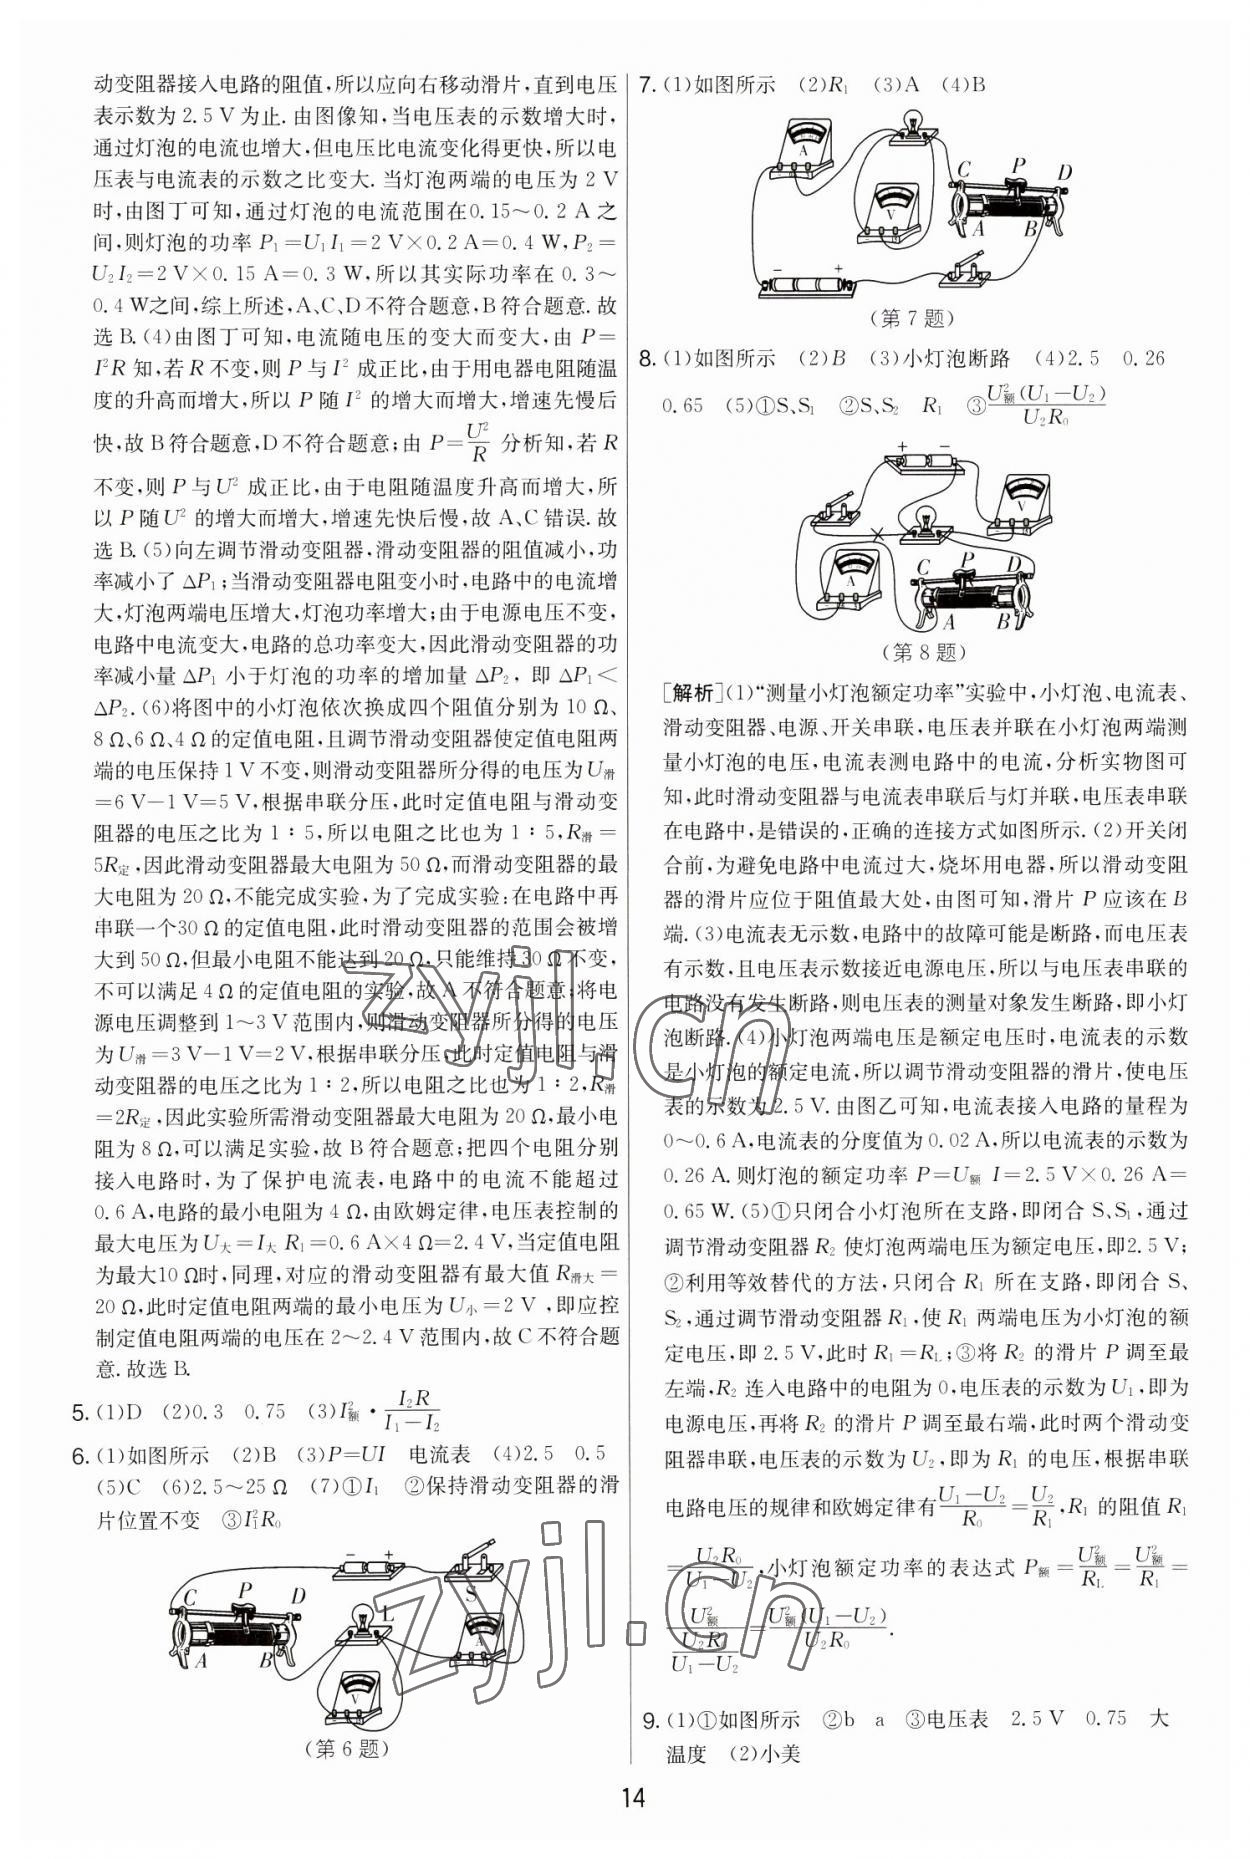 动变阻器接入电路的阻值,所以应向右移动滑片,直到电压
表示数为 2.5 V为止. 由图像知,当电压表的示数增大时,
通过灯泡的电流也增大,但电压比电流变化得更快,所以电
压表与电流表的示数之比变大. 当灯泡两端的电压为 2 V
时,由图丁可知,通过灯泡的电流范围在0.15～0.2 A 之
间,则灯泡的功率 P₁=U₁I₁=2 V×0.2 A=0.4 W,P₂=
U₂I₂=2 V×0.15 A=0.3 W,所以其实际功率在 0.3～
0.4 W之间,综上所述,A、C、D不符合题意,B符合题意. 故
选 B. (4)由图丁可知,电流随电压的变大而变大,由 P=
I²R 知,若 R 不变,则 P 与 I² 成正比,由于用电器电阻随温
度的升高而增大,所以 P 随 I² 的增大而增大,增速先慢后
快,故 B 符合题意,D 不符合题意;由 P=U²/R 分析知,若 R
不变,则 P 与 U² 成正比,由于电阻随温度升高而增大,所
以 P 随 U² 的增大而增大,增速先快后慢,故 A、C 错误. 故
选 B. (5)向左调节滑动变阻器,滑动变阻器的阻值减小,功
率减小了 ΔP₁;当滑动变阻器电阻变小时,电路中的电流增
大,灯泡两端电压增大,灯泡功率增大;由于电源电压不变,
电路中电流变大,电路的总功率变大,因此滑动变阻器的功
率减小量 ΔP₁ 小于灯泡的功率的增加量 ΔP₂, 即 ΔP₁<
ΔP₂. (6)将图中的小灯泡依次换成四个阻值分别为 10 Ω、
8 Ω、6 Ω、4 Ω 的定值电阻,且调节滑动变阻器使定值电阻两
端的电压保持 1 V 不变,则滑动变阻器所分得的电压为U滑
=6 V-1 V=5 V,根据串联分压,此时定值电阻与滑动变
阻器的电压之比为 1∶5,所以电阻之比也为 1∶5,R滑=
5R定,因此滑动变阻器最大电阻为 50 Ω,而滑动变阻器的最
大电阻为 20 Ω,不能完成实验,为了完成实验:在电路中再
串联一个30 Ω 的定值电阻,此时滑动变阻器的范围会被增
大到 50 Ω,但最小电阻不能达到 20 Ω,只能维持 30 Ω 不变,
不可以满足 4 Ω 的定值电阻的实验,故 A 不符合题意;将电
源电压调整到 1～3 V 范围内,则滑动变阻器所分得的电压
为 U滑=3 V-1 V=2 V,根据串联分压,此时定值电阻与滑
动变阻器的电压之比为 1∶2,所以电阻之比也为 1∶2,R滑
=2R定,因此实验所需滑动变阻器最大电阻为 20 Ω,最小电
阻为 8 Ω,可以满足实验,故 B 符合题意;把四个电阻分别
接入电路时,为了保护电流表,电路中的电流不能超过
0.6 A,电路的最小电阻为 4 Ω,由欧姆定律,电压表控制的
最大电压为 U大=I大 R₁=0.6 A×4 Ω=2.4 V,当定值电阻
为最大10 Ω时,同理,对应的滑动变阻器有最大值 R滑大=
20 Ω,此时定值电阻两端的最小电压为 U小=2 V ,即应控
制定值电阻两端的电压在 2～2.4 V 范围内,故 C 不符合题
意. 故选 B.
5. (1)D (2)0.3 0.75 (3)I²额·I₂R/(I₁-I₂)
6. (1)如图所示 (2)B (3)P=UI 电流表 (4)2.5 0.5
(5)C (6)2.5～25 Ω (7)①I₁ ②保持滑动变阻器的滑
片位置不变 ③I₁²R₀
- +
C P D L S
A B A
V
(第 6 题)
7. (1)如图所示 (2)R₁ (3)A (4)B
A
C P D
V
A B
- +
(第 7 题)
8. (1)如图所示 (2)B (3)小灯泡断路 (4)2.5 0.26
0.65 (5)①S、S₁ ②S、S₂ R₁ ③U²额(U₁-U₂)/U₂R₀
+ -
V
A C P D
A B
(第 8 题)
[解析](1)“测量小灯泡额定功率”实验中,小灯泡、电流表、
滑动变阻器、电源、开关串联,电压表并联在小灯泡两端测
量小灯泡的电压,电流表测电路中的电流,分析实物图可
知,此时滑动变阻器与电流表串联后与灯并联,电压表串联
在电路中,是错误的,正确的连接方式如图所示. (2)开关闭
合前,为避免电路中电流过大,烧坏用电器,所以滑动变阻
器的滑片应位于阻值最大处,由图可知,滑片 P 应该在 B
端. (3)电流表无示数,电路中的故障可能是断路,而电压表
有示数,且电压表示数接近电源电压,所以与电压表串联的
电路没有发生断路,则电压表的测量对象发生断路,即小灯
泡断路. (4)小灯泡两端电压是额定电压时,电流表的示数
是小灯泡的额定电流,所以调节滑动变阻器的滑片,使电压
表的示数为 2.5 V. 由图乙可知,电流表接入电路的量程为
0～0.6 A,电流表的分度值为 0.02 A,所以电流表的示数为
0.26 A. 则灯泡的额定功率 P=U额 I=2.5 V×0.26 A=
0.65 W. (5)①只闭合小灯泡所在支路,即闭合 S、S₁,通过
调节滑动变阻器 R₂ 使灯泡两端电压为额定电压,即2.5 V;
②利用等效替代的方法,只闭合 R₁ 所在支路,即闭合 S、
S₂,通过调节滑动变阻器 R₁,使 R₁ 两端电压为小灯泡的额
定电压,即 2.5 V,此时 R₁=R_L;③将 R₂ 的滑片 P 调至最
左端,R₂ 连入电路中的电阻为 0,电压表的示数为 U₁,即为
电源电压,再将 R₂ 的滑片 P 调至最右端,此时两个滑动变
阻器串联,电压表的示数为 U₂,即为 R₁ 的电压,根据串联
电路电压的规律和欧姆定律有(U₁-U₂)/R₀=U₂/R₁,R₁ 的阻值 R₁
=U₂R₀/(U₁-U₂),小灯泡额定功率的表达式 P额=U²额/R_L=U²额/R₁=
U²额/(U₂R/(U₁-U₂))=U²额(U₁-U₂)/U₂R₀.
9. (1)①如图所示 ②b a ③电压表 2.5 V 0.75 大
温度 (2)小美
14
zyjl.cn
zyjl.cn